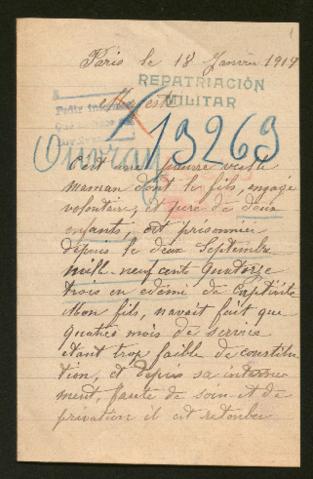 Paris le 18 Janvier 1917
REPATRIACIÓN
MILITAR
Majesté
Pedir informes
13263
C'est une pauvre vieille
maman dont le fils, engagé
volontaire, et père de deux
enfants, est prisonnier
depuis le deux Septembre
mill neuf cents quatorze
trois en edémi de Captivité
Mon fils, n'avait fait que
quatres mois de services
étant trop faible de constitu
tion, et depuis sa interne
ment, faute de soin et de
privation il est retombé